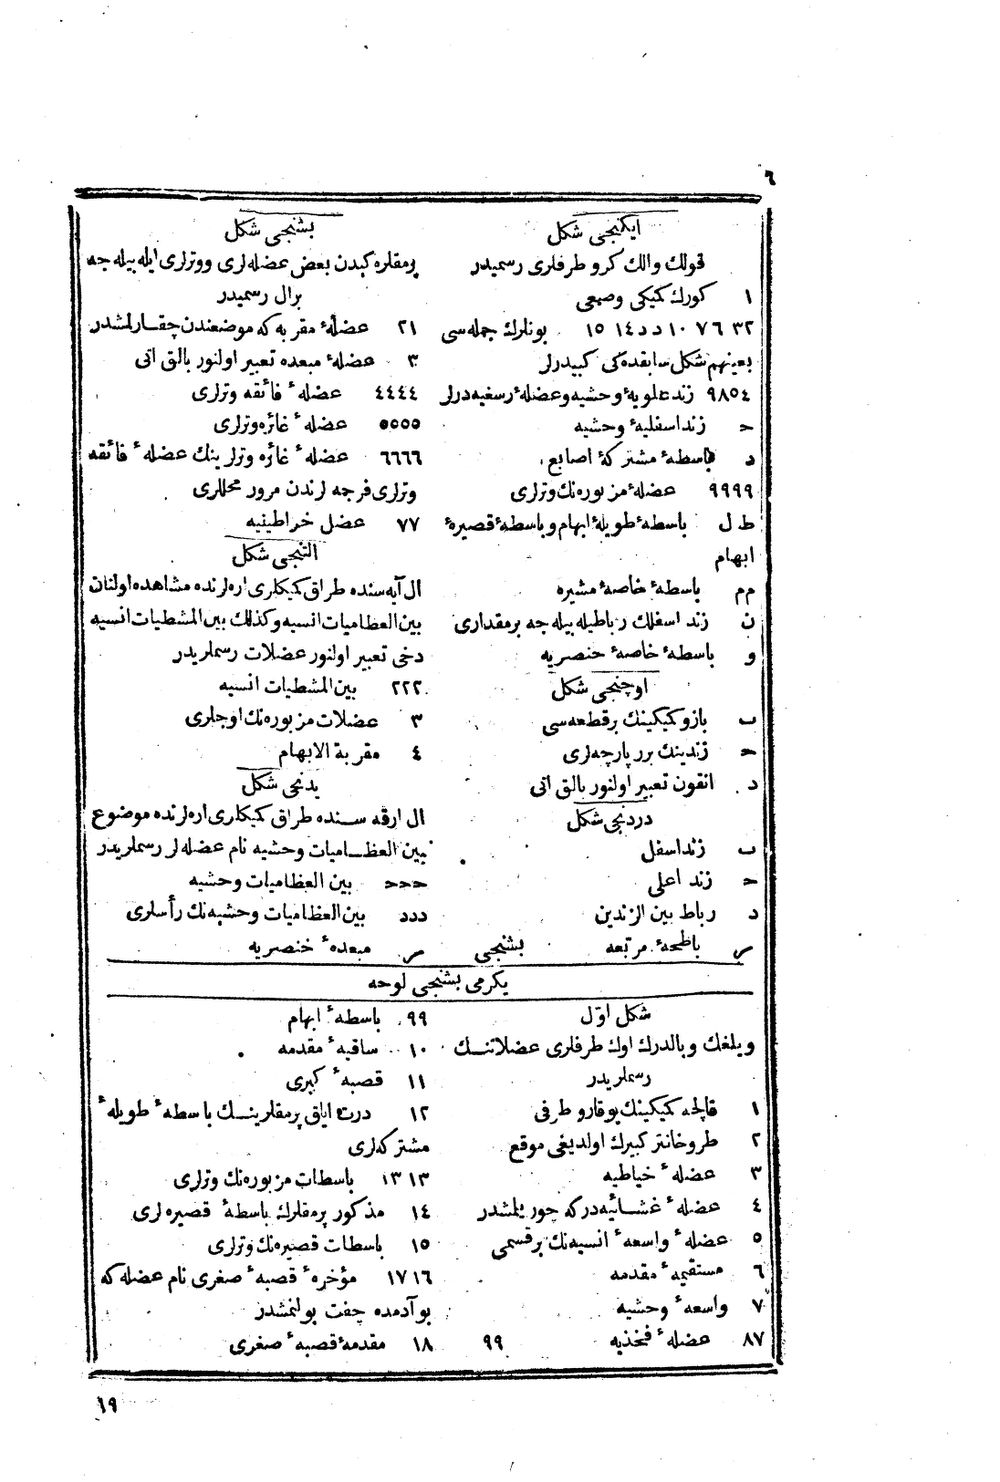 ٦
ایكنجی شكل
قولك والك كرو طرفلری رسمیدر
١ كورك كمیكی وضعی
٣٢ ٧٦ ١٠ دد ١٤ ١٥ بونلرك جمله سی
بعینهم شكل سابقده كی كبیدرلر
٩٨٥٤ زند علویهٔ وحشیه وعضلهٔ رسغیه درلر
ح زند اسفلیهٔ وحشیه
د باسطهٔ مشتركهٔ اصابع
٩٩٩٩ عضلهٔ مزبوره نك وترلری
ط ل باسطهٔ طویلهٔ ابهام وباسطهٔ قصیرهٔ
ابهام
م م باسطهٔ خاصهٔ مشیره
ن زند اسفلك رباطیله بیله جه بر مقداری
و باسطهٔ خاصهٔ خنصریه
اوچنجی شكل
ب بازو كمیكینك بر قطعه سی
ح زندینك برر پارچه لری
د انقون تعبیر اولنور بالق اتی
دردنجی شكل
ب زند اسفل
ح زند اعلی
د رباط بین الزندین
ر باطحهٔ مربعه
بشنجی
بشنجی شكل
پرمقلره كیدن بعض عضله لری ووترلری ایله بیله جه
برال رسمیدر
٢١ عضلهٔ مقربه كه موضعندن چقارلمشدر
٣ عضلهٔ مبعده تعبیر اولنور بالق اتی
٤٤٤٤ عضلهٔ فائقه وترلری
٥٥٥٥ عضلهٔ غائزه وترلری
٦٦٦٦ عضلهٔ غائزه وترلرینك عضلهٔ فائقه
وترلری فرجه لرندن مرور محللری
٧٧ عضل خراطینیه
التنجی شكل
ال آیه سنده طراق كمیكلری اره لرنده مشاهده اولنان
بین العظامیات انسیه وكذلك بین المشطیات انسیه
دخی تعبیر اولنور عضلات رسملریدر
٢٢٢ بین المشطیات انسیه
٣ عضلات مزبوره نك اوجلری
٤ مقربة الابهام
یدنجی شكل
ال ارقه سنده طراق كمیكلری اره لرنده موضوع
بین العظامیات وحشیه نام عضله لر رسملریدر
ححح بین العظامیات وحشیه
ددد بین العظامیات وحشیه نك رأسلری
ر مبعدهٔ خنصریه
یكرمی بشنجی لوحه
شكل اوّل
ویلغك وبالدرك اوك طرفلری عضلاتنك
رسملریدر
١ قالچه كمیكینك یوقارو طرفی
٢ طروخانتر كبیرك اولدیغی موقع
٣ عضلهٔ خیاطیه
٤ عضلهٔ غشائیه در كه چوریلمشدر
٥ عضلهٔ واسعهٔ انسیه نك بر قسمی
٦ مستقیمهٔ مقدمه
٧ واسعهٔ وحشیه
٨٧ عضلهٔ فخذیه
٩٩
٩٩ باسطهٔ ابهام
١٠ ساقیهٔ مقدمه
١١ قصبهٔ كبری
١٢ درت ایاق پرمقلرینك باسطهٔ طویلهٔ
مشتركه لری
١٣ ١٣ باسطات مزبوره نك وترلری
١٤ مذكور پرمقلرك باسطهٔ قصیره لری
١٥ باسطات قصیره نك وترلری
١٦ ١٧ مؤخرهٔ قصبهٔ صغری نام عضله كه
بوآدمده چفت بولنمشدر
١٨ مقدمهٔ قصبهٔ صغری
١٩